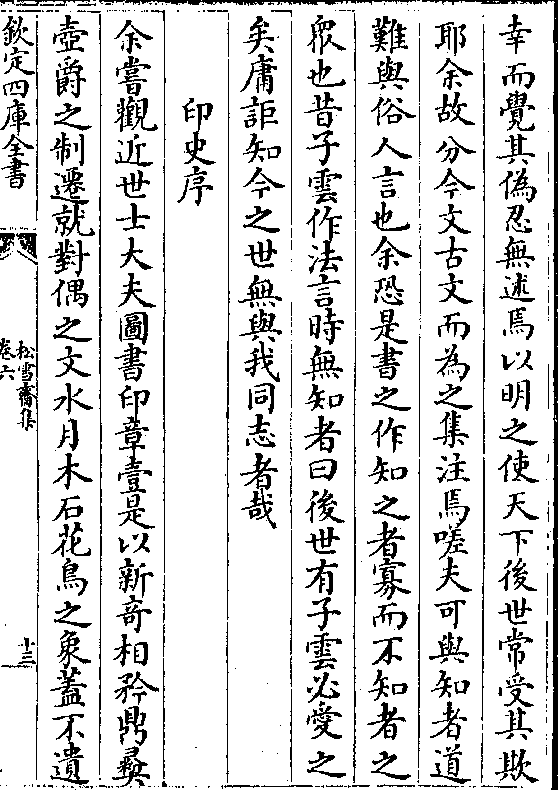 幸而覺其偽忍無述焉以明之使天下後世常受其欺
耶余故分今文古文而為之集注焉嗟夫可與知者道
難與俗人言也余恐是書之作知之者寡而不知者之
衆也昔子雲作法言時無知者曰後世有子雲必愛之
矣庸詎知今之世無與我同志者哉
印史序
余嘗觀近世士大夫圖書印章壹是以新奇相矜鼎彛
壺爵之制遷就對偶之文水月木石花鳥之象蓋不遺
欽定四庫全書
松雪齋集
卷六
十三